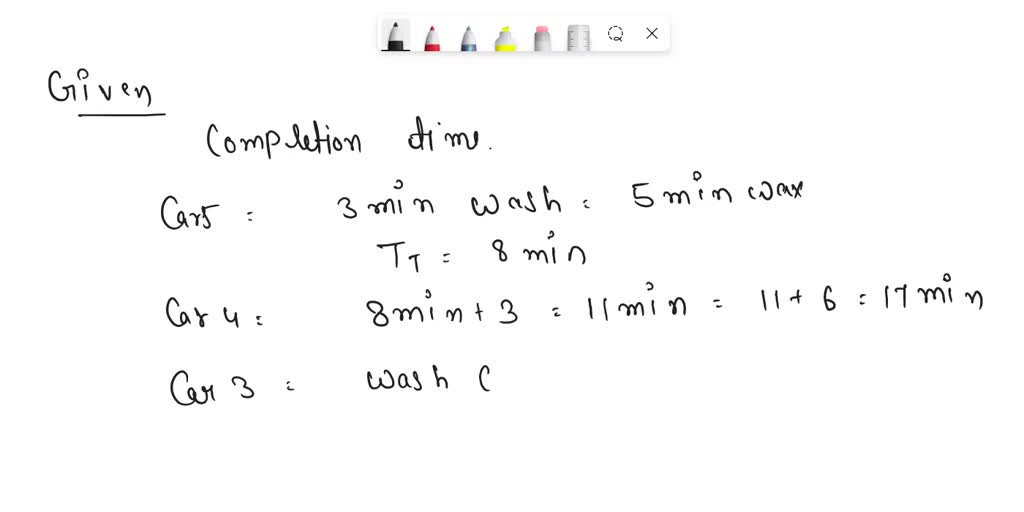 Given
Completion time.
Car 5 = 3 min wash = 5 min wax
T_T = 8 min
Car 4 = 8 min + 3 = 11 min = 11 + 6 = 17 min
Car 3 = wash (